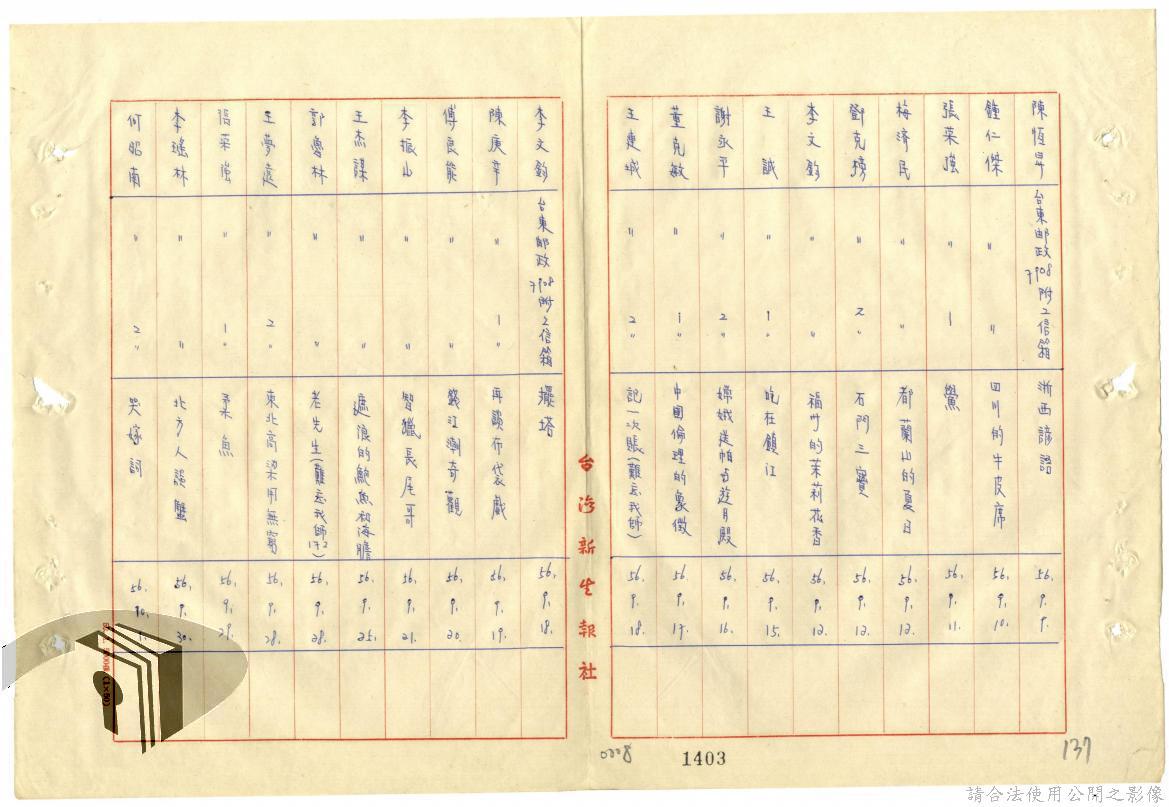 陳恆昇 台東郵政7908附2信箱 浙西諺語 56. 9. 9.
鍾仁傑 〃 〃 四川的牛皮席 56. 9. 10.
張葉強 〃 1 〃 鱟 56. 9. 11.
梅濟民 〃 〃 都蘭山的夏日 56. 9. 12.
鄧克榜 〃 2 〃 石門三寶 56. 9. 12.
李文鈞 〃 〃 福州的茉莉花香 56. 9. 12.
王誠 〃 1 〃 吃在鎮江 56. 9. 15.
謝永平 〃 2 〃 嫦娥從帕占遊月殿 56. 9. 16.
董克敏 〃 1 〃 中國倫理的象徵 56. 9. 17.
王建城 〃 2 〃 記一次賬(難忘我師) 56. 9. 18.
台灣新生報社
李文鈞 台東郵政7908附2信箱 擺塔 56. 9. 18.
陳庚辛 〃 1 〃 再談布袋戲 56. 9. 19.
傅良能 〃 〃 錢江潮奇觀 56. 9. 20.
李振山 〃 〃 智獵長尾哥 56. 9. 21.
王杰謀 〃 〃 逐浪的鮑魚和海膽 56. 9. 25.
郭魯林 〃 〃 老先生(難忘我師172) 56. 9. 28.
王夢遠 〃 2 〃 東北高梁用無窮 56. 9. 28.
張葉強 〃 1 〃 柔魚 56. 9. 29.
李瑤林 〃 〃 北方人談蟹 56. 9. 30.
何昭南 〃 2 〃 哭嫁詞 56. 10. 1.
(1×50)
0008
1403
137
請合法使用公開之影像